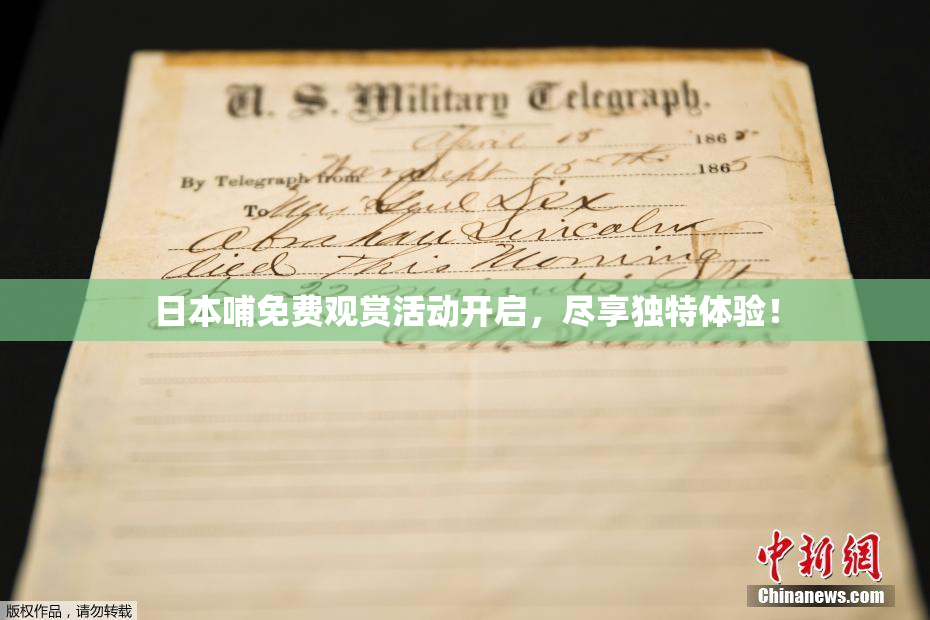 U. S. Military Telegraph.
April 15 1865
By Telegraph from War Dept 15th 1865
To Maj Genl Dix
Abraham Lincoln
died This Morning
at 22 minutes after
日本哺免费观赏活动开启，尽享独特体验！
中新网
Chinanews.com
版权作品，请勿转载